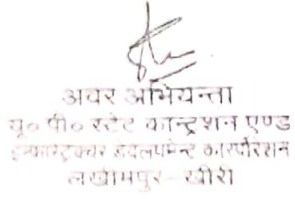 अवर अभियन्ता
यू० पी० स्टेट कान्ट्रशन एण्ड
इन्फ्रास्ट्रक्चर डेवलपमेन्ट कार्पोरेशन
लखीमपुर-खीरी